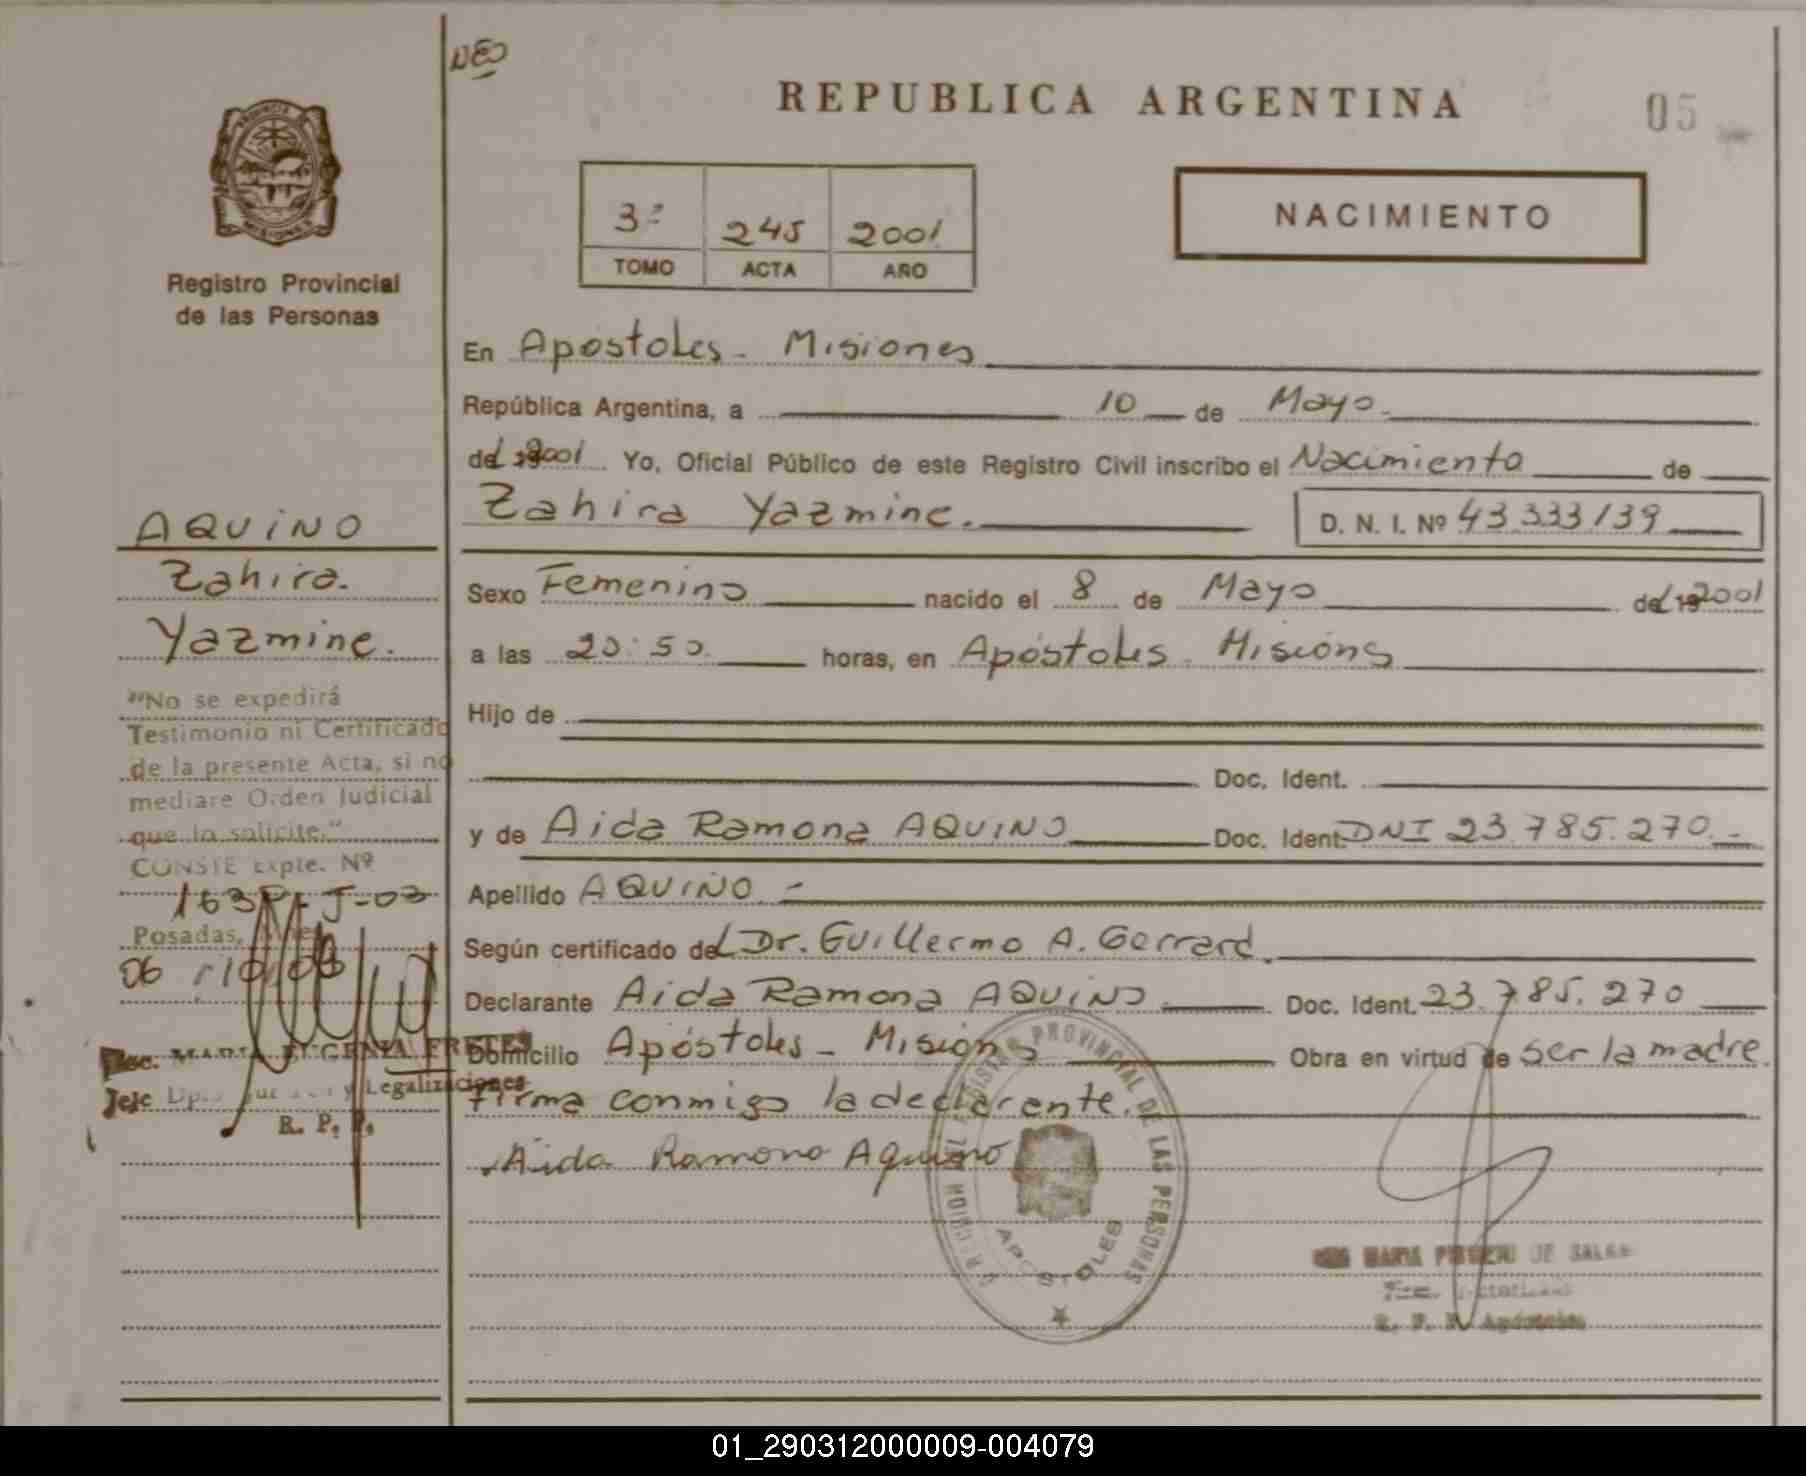 NEO
REPUBLICA ARGENTINA
05
PROVINCIA
MISIONES
Registro Provincial
de las Personas
3º 245 2001
TOMO ACTA AÑO
NACIMIENTO
En Apóstoles - Misiones
República Argentina, a 10 de Mayo.
del 2001 Yo, Oficial Público de este Registro Civil inscribo el Nacimiento de
Zahira Yazmine.
D. N. I. Nº 43 333 139
Sexo Femenino nacido el 8 de Mayo del 2001
a las 20:50. horas, en Apóstoles - Misions
Hijo de
Doc. Ident.
y de Aida Ramona AQUINO Doc. Ident. DNI 23.785.270.-
Apellido AQUINO.-
Según certificado del Dr. Guillermo A. Gerrard.
Declarante Aida Ramona AQUINO Doc. Ident. 23.785.270
Domicilio Apóstoles - Misions Obra en virtud de ser la madre.
Firma conmigo la declarente.
Aida Ramona Aquino
AQUINO
Zahira.
Yazmine.
"No se expedirá
Testimonio ni Certificado
de la presente Acta, si no
mediare Orden Judicial
que lo solicite."
CONSTE Expte. Nº
163 J-03
Posadas,
06 10 03
MARIA EUGENIA FRETES
Jefe y Legalizaciones
R. P. P.
REGISTRO PROVINCIAL DE LAS PERSONAS
APOSTOLES
MARIA DE
R. P. P. Apóstoles
01_290312000009-004079